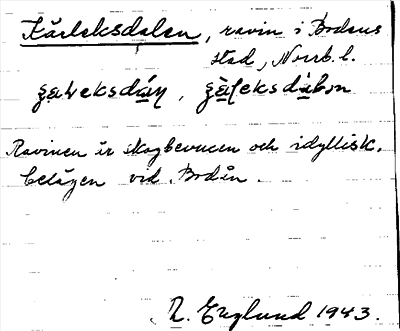 Kärleksdalen, ravin i Bodens
stad, Norrb. l.
Ravinen är skogbevuxen och idyllisk,
belägen vid Bodån.
R. Englund 1943.